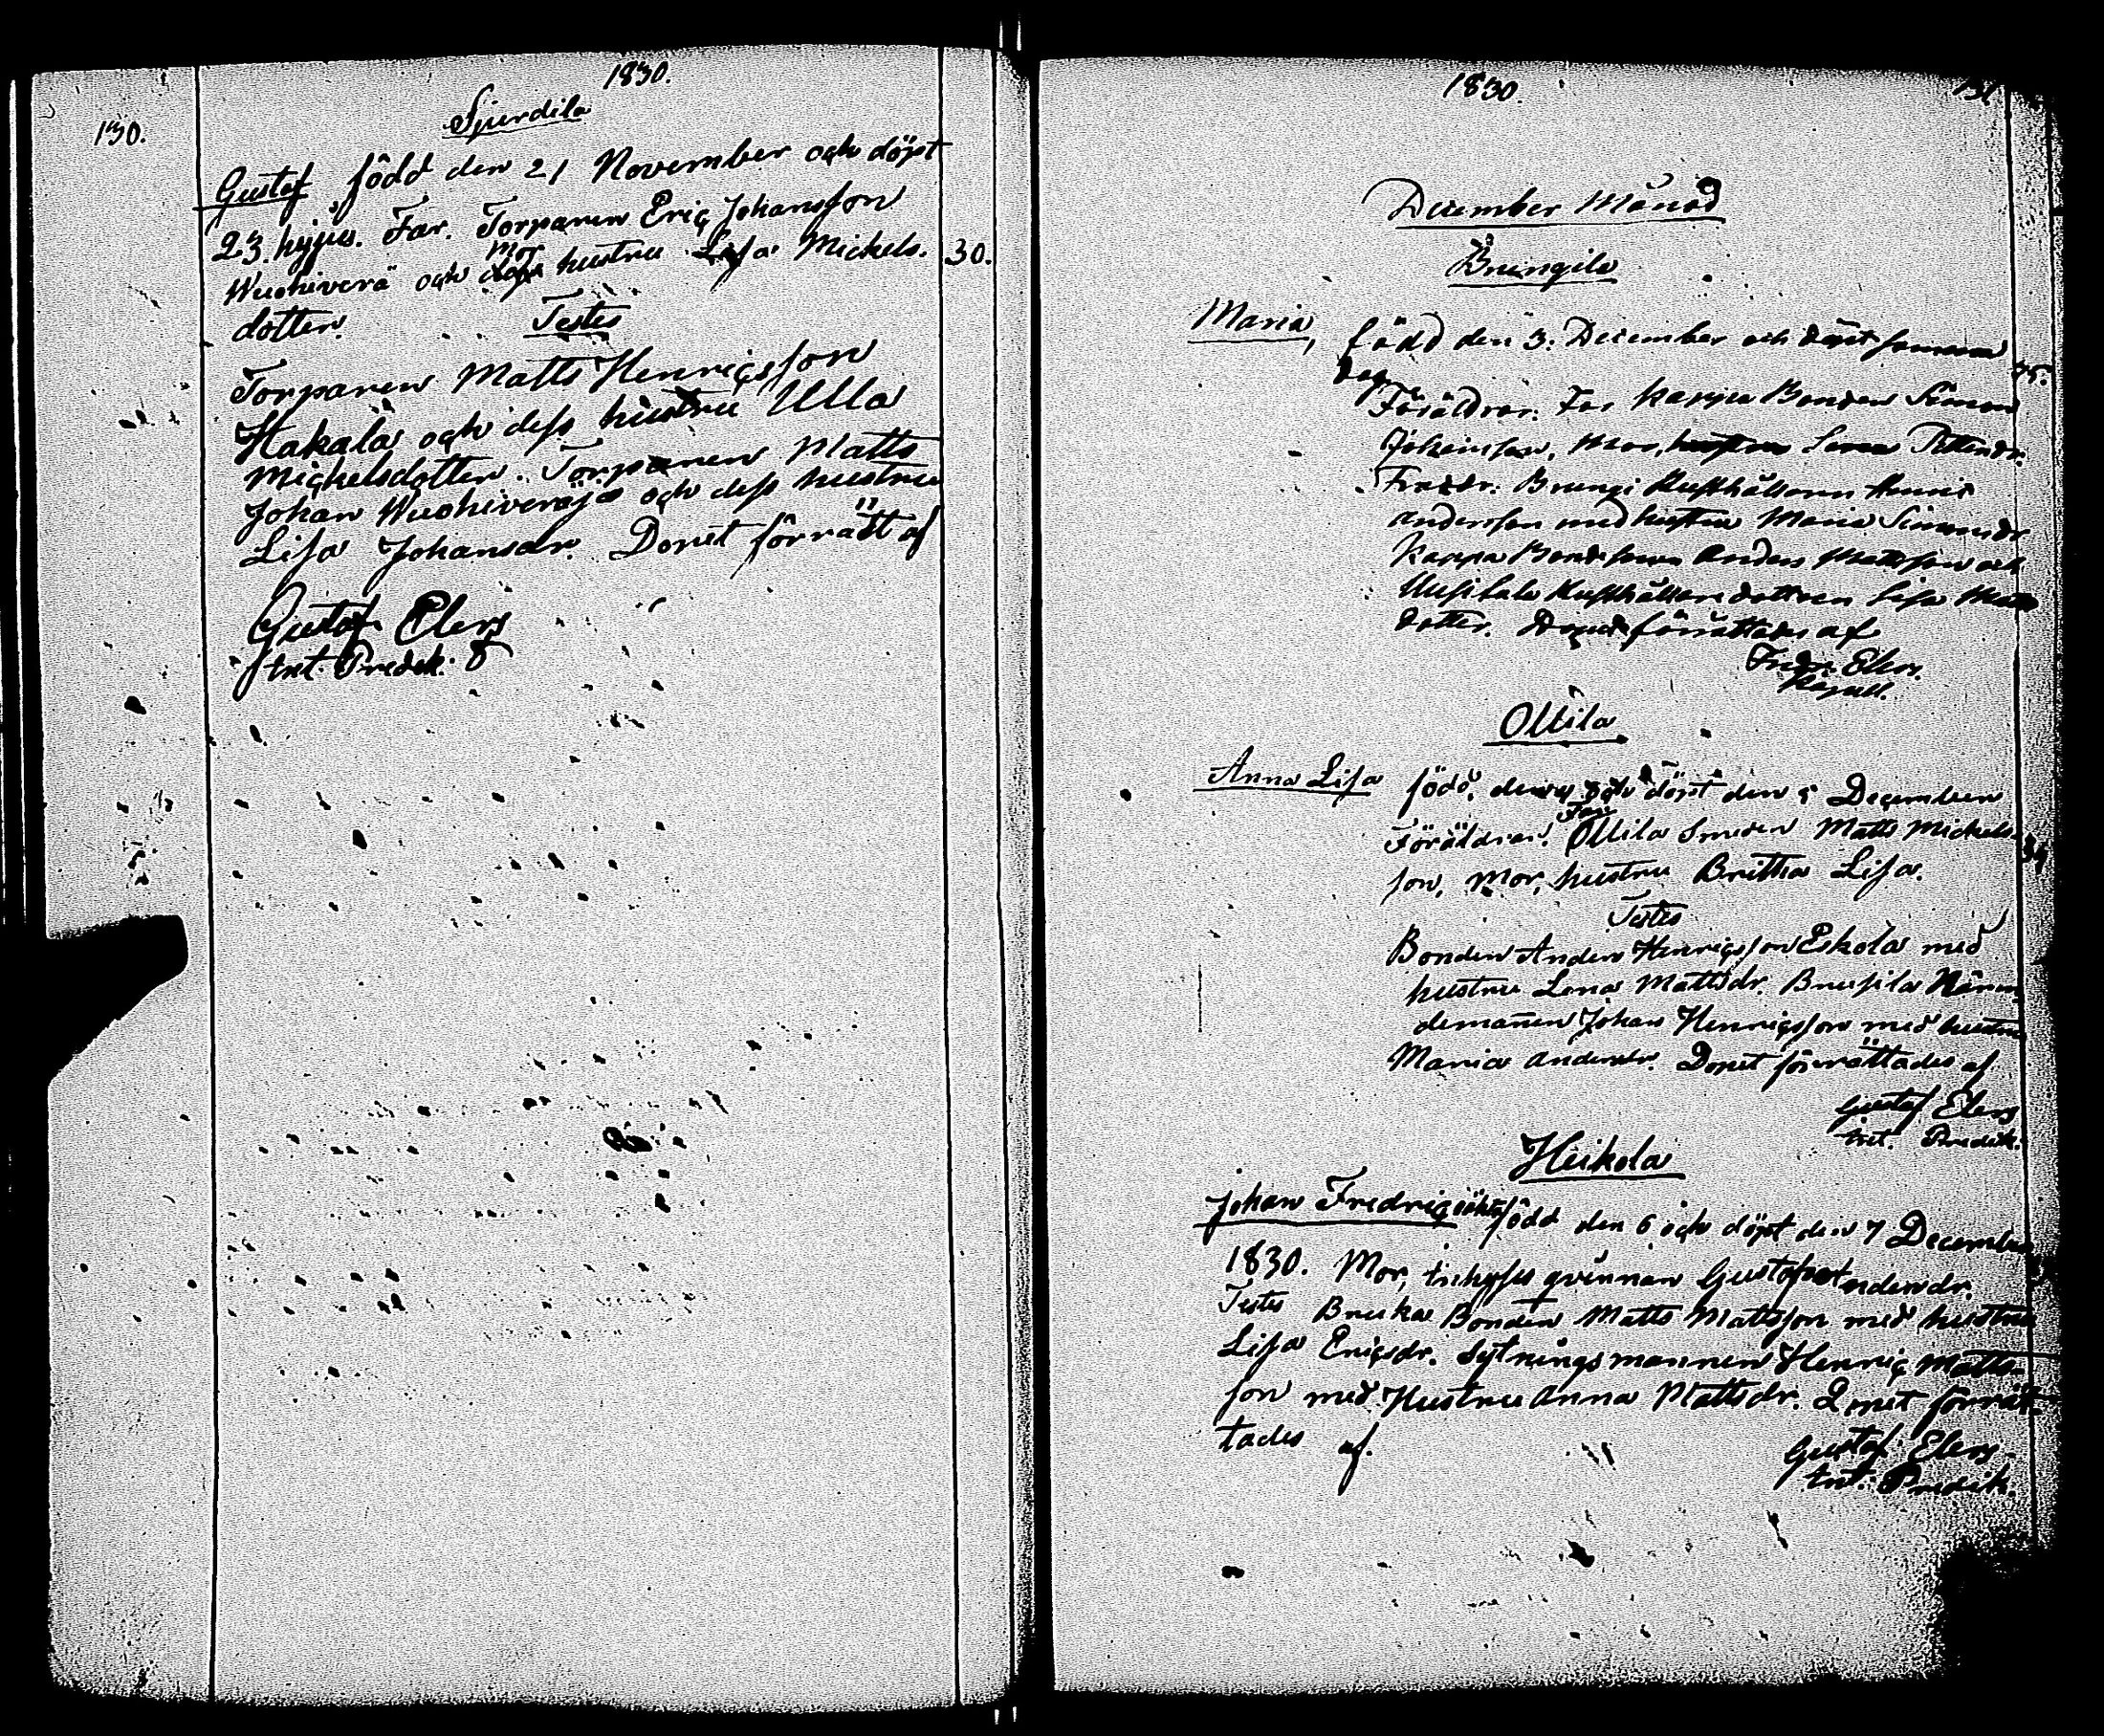 1830.
130.
Sjurdila
Gustaf, född den 21 November och döpt
23. hujus. Far. Torparen Eriç Johansson
Mor
Wuohiverä och hustru Lisa Mickels. 30.
dotter.
Testes
Torparen Matts Henriçsson
Hakala och dess hustru Ulla
Miçkelsdotter. Torparen Matts
Johan Wuohiveräjä och dess hustru
Lisa Johansdr. Dopet förrätt af
Gustaf Elers
Predik.
1830.
131
December Månad
Brungila
Maria, född den 3: December och döpt samma 35.
dag
Föräldrar: Far Karppa Bonden Simon
Johansson, Mor, hustru Lena Pettersdr.
Faddr: Brungi Rusthållaren
Andersson med hustru Maria Simonsdr.
Karppa Bondesonen Anders Mattsson och
Rusthållaredottren Lisa
dotter. Dopet förrättades af
Fredr. Elers.
Kapell.
Ollila
Anna Lisa född, den 4 och döpt den 5 December
Far
Föräldrar: Ollila Smeden Matts Mickels- 34
son, Mor, hustru Britha Lisa.
Testes
Bonden Anders Henriçsson Eskola med
hustru Lena Mattsdr. Brusila Näm-
demannen Johan Henriçsson med hustru
Maria Andersdr. Dopet förrättades af
Gustaf Elers
Predik.
Heikola
Johan Fredriç oäkta född den 6 och döpt den 7 December
1830. Mor, inhyses qvinnan Gustafva Andersdr.
Testes Bruka Bonden Matts Mattsson med hustru
Lisa Eriçsdr. Sytningsmannen Henriç Matts-
son med Hustru Anna Mattsdr. Dopet förrät-
tades af.
Gustaf Elers
Predik.